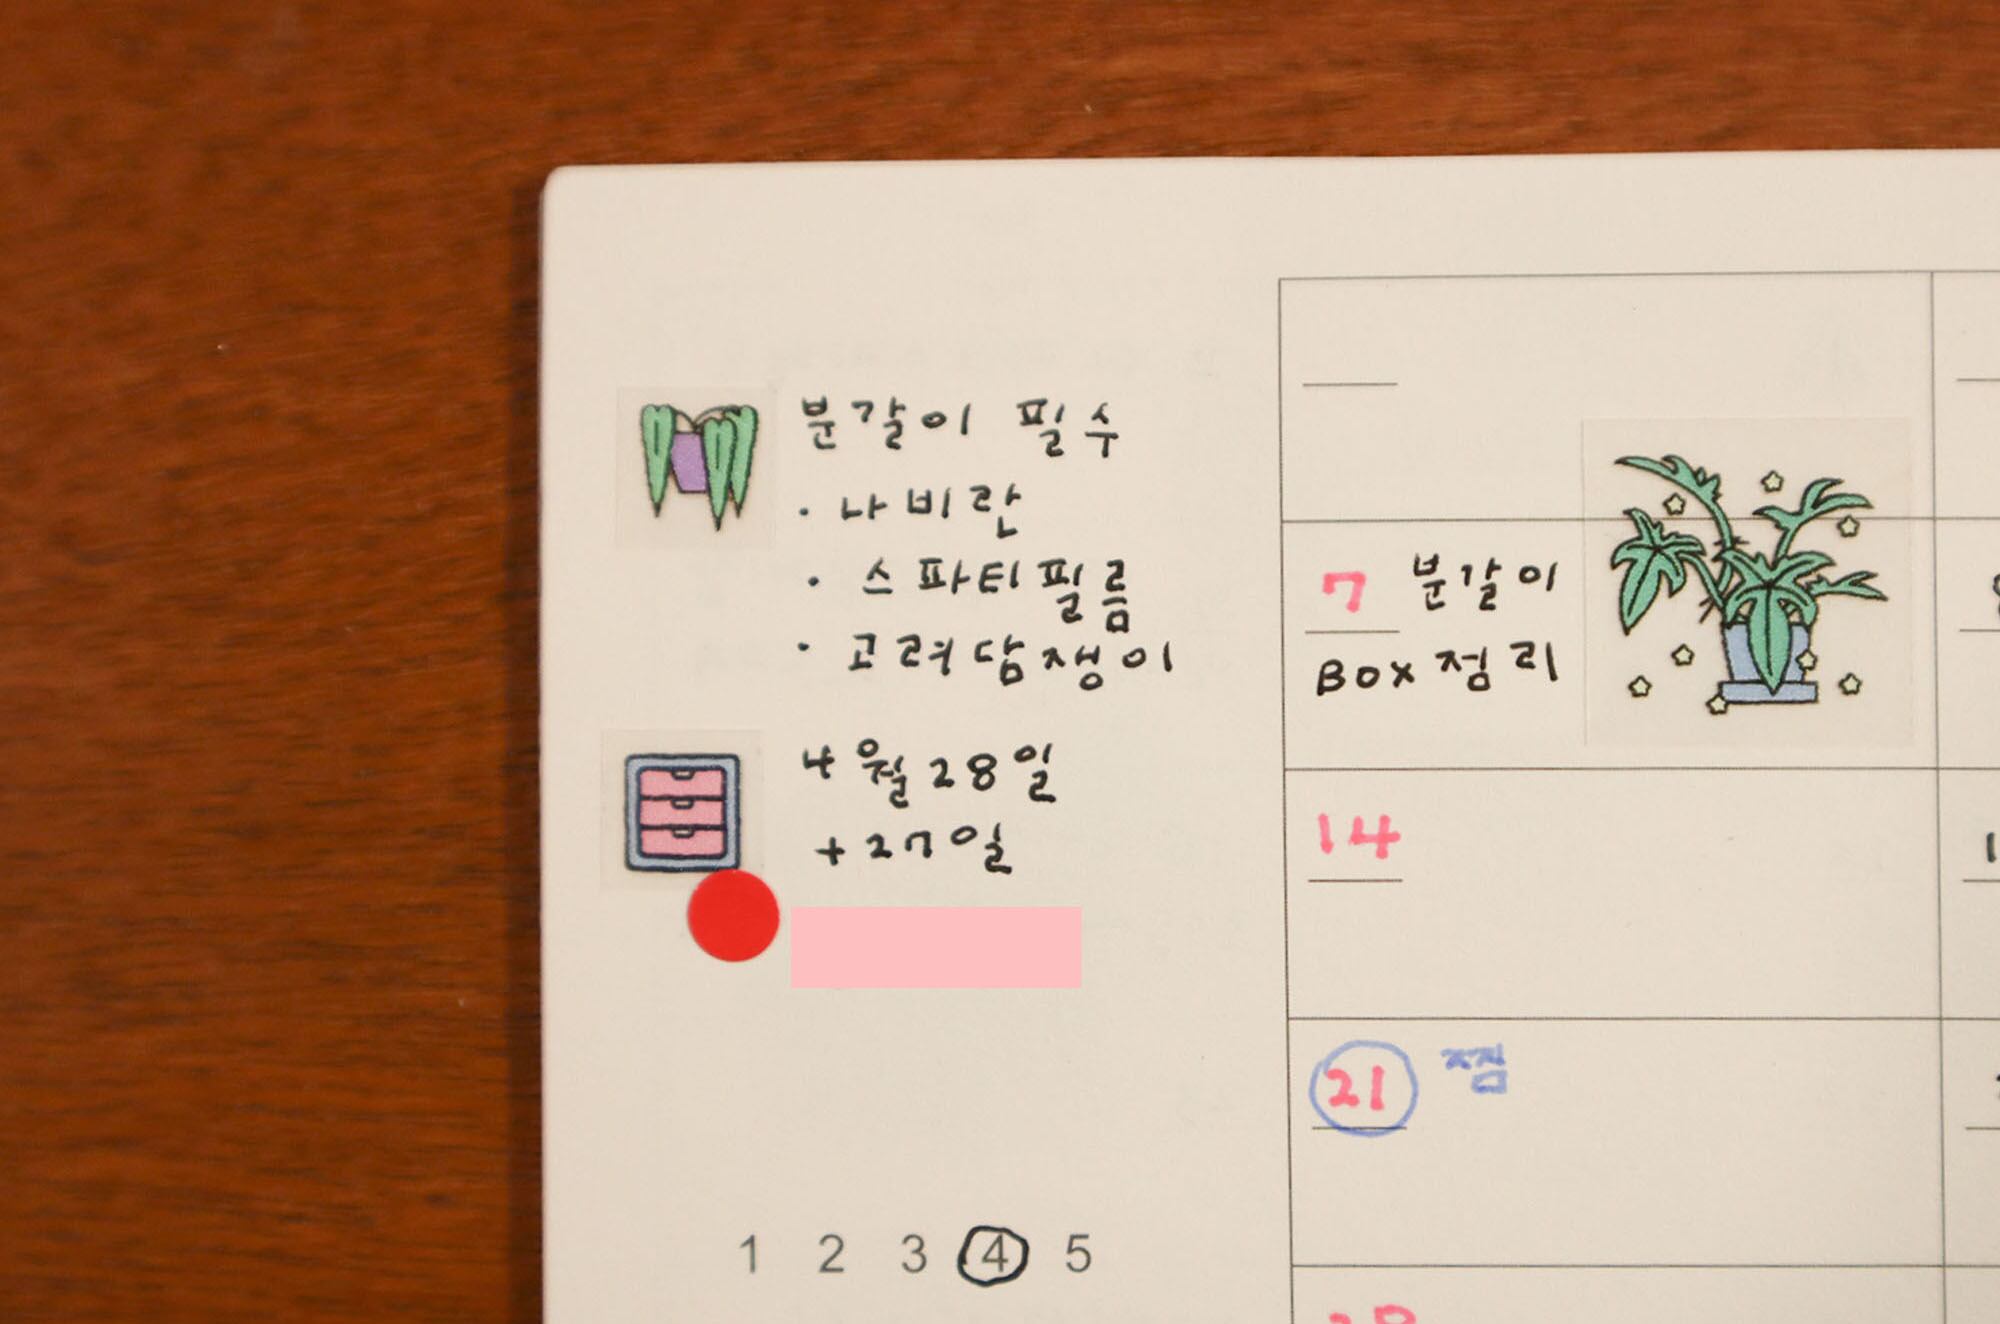 분갈이 필수
· 나비란
· 스파티필름
· 고려담쟁이
4월 28일
+27일
1 2 3 4 5
7 분갈이
BOX 정리
14
21 찜
28